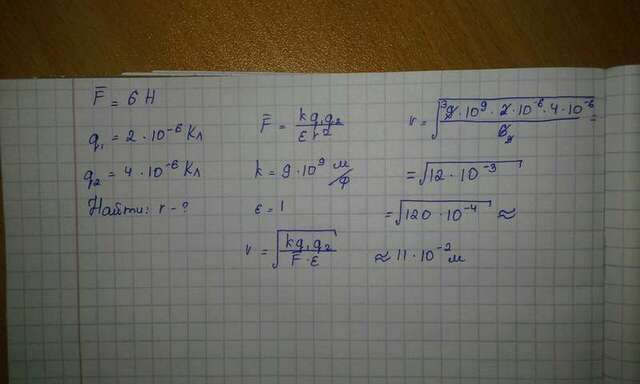 F̅ = 6 Н
q₁ = 2 · 10⁻⁶ Кл
q₂ = 4 · 10⁻⁶ Кл
Найти: r - ?
F̅ = kq₁q₂ / εr²
k = 9 · 10⁹ м/Ф
ε = 1
r = √(kq₁q₂ / F · ε)
r = √(³9 · 10⁹ · 2 · 10⁻⁶ · 4 · 10⁻⁶ / 6₂) =
= √(12 · 10⁻³)
= √(120 · 10⁻⁴) ≈
≈ 11 · 10⁻² м